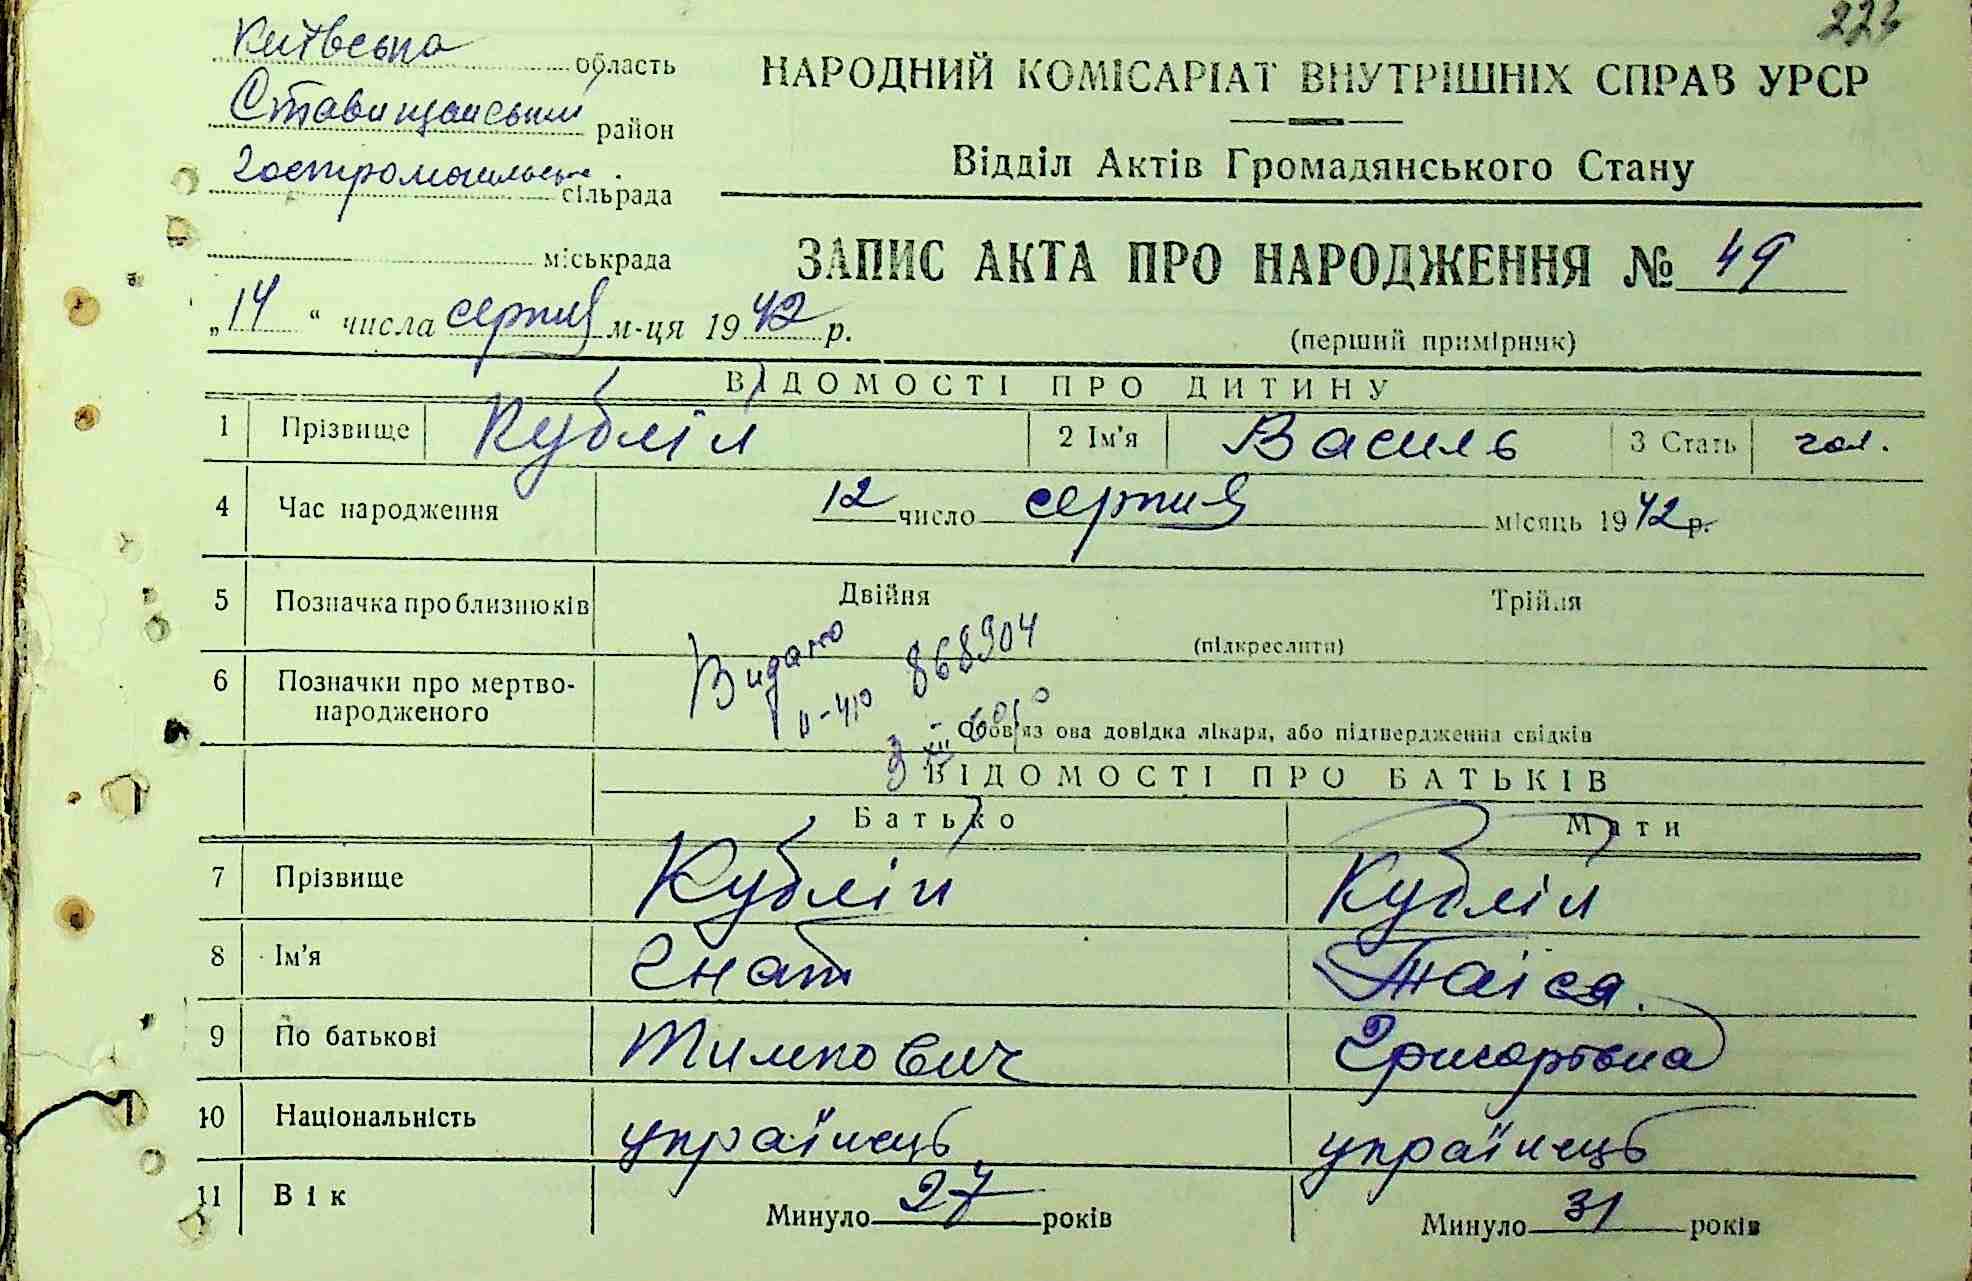 223
Київська область
Ставищанський район
Гостромогильська сільрада
міськрада
НАРОДНИЙ КОМІСАРІАТ ВНУТРІШНІХ СПРАВ УРСР
Відділ Актів Громадянського Стану
ЗАПИС АКТА ПРО НАРОДЖЕННЯ № 49
„14“ числа серпня м-ця 1942 р.
(перший примірник)
ВІДОМОСТІ ПРО ДИТИНУ
1 Прізвище Кублій 2 Ім'я Василь 3 Стать чол.
4 Час народження 12 число серпня місяць 1942 р.
5 Позначка про близнюків Двійня Трійня
(підкреслити)
Видано
II-ЧЮ 868904
6 Позначки про мертво-
народженого
Обов'язкова довідка лікаря, або підтвердження свідків
ВІДОМОСТІ ПРО БАТЬКІВ
Батько Мати
7 Прізвище Кублій Кублій
8 Ім'я Гнат Таіса.
9 По батькові Тимкович Григорівна
10 Національність українець українець
11 Вік Минуло 27 років Минуло 31 років